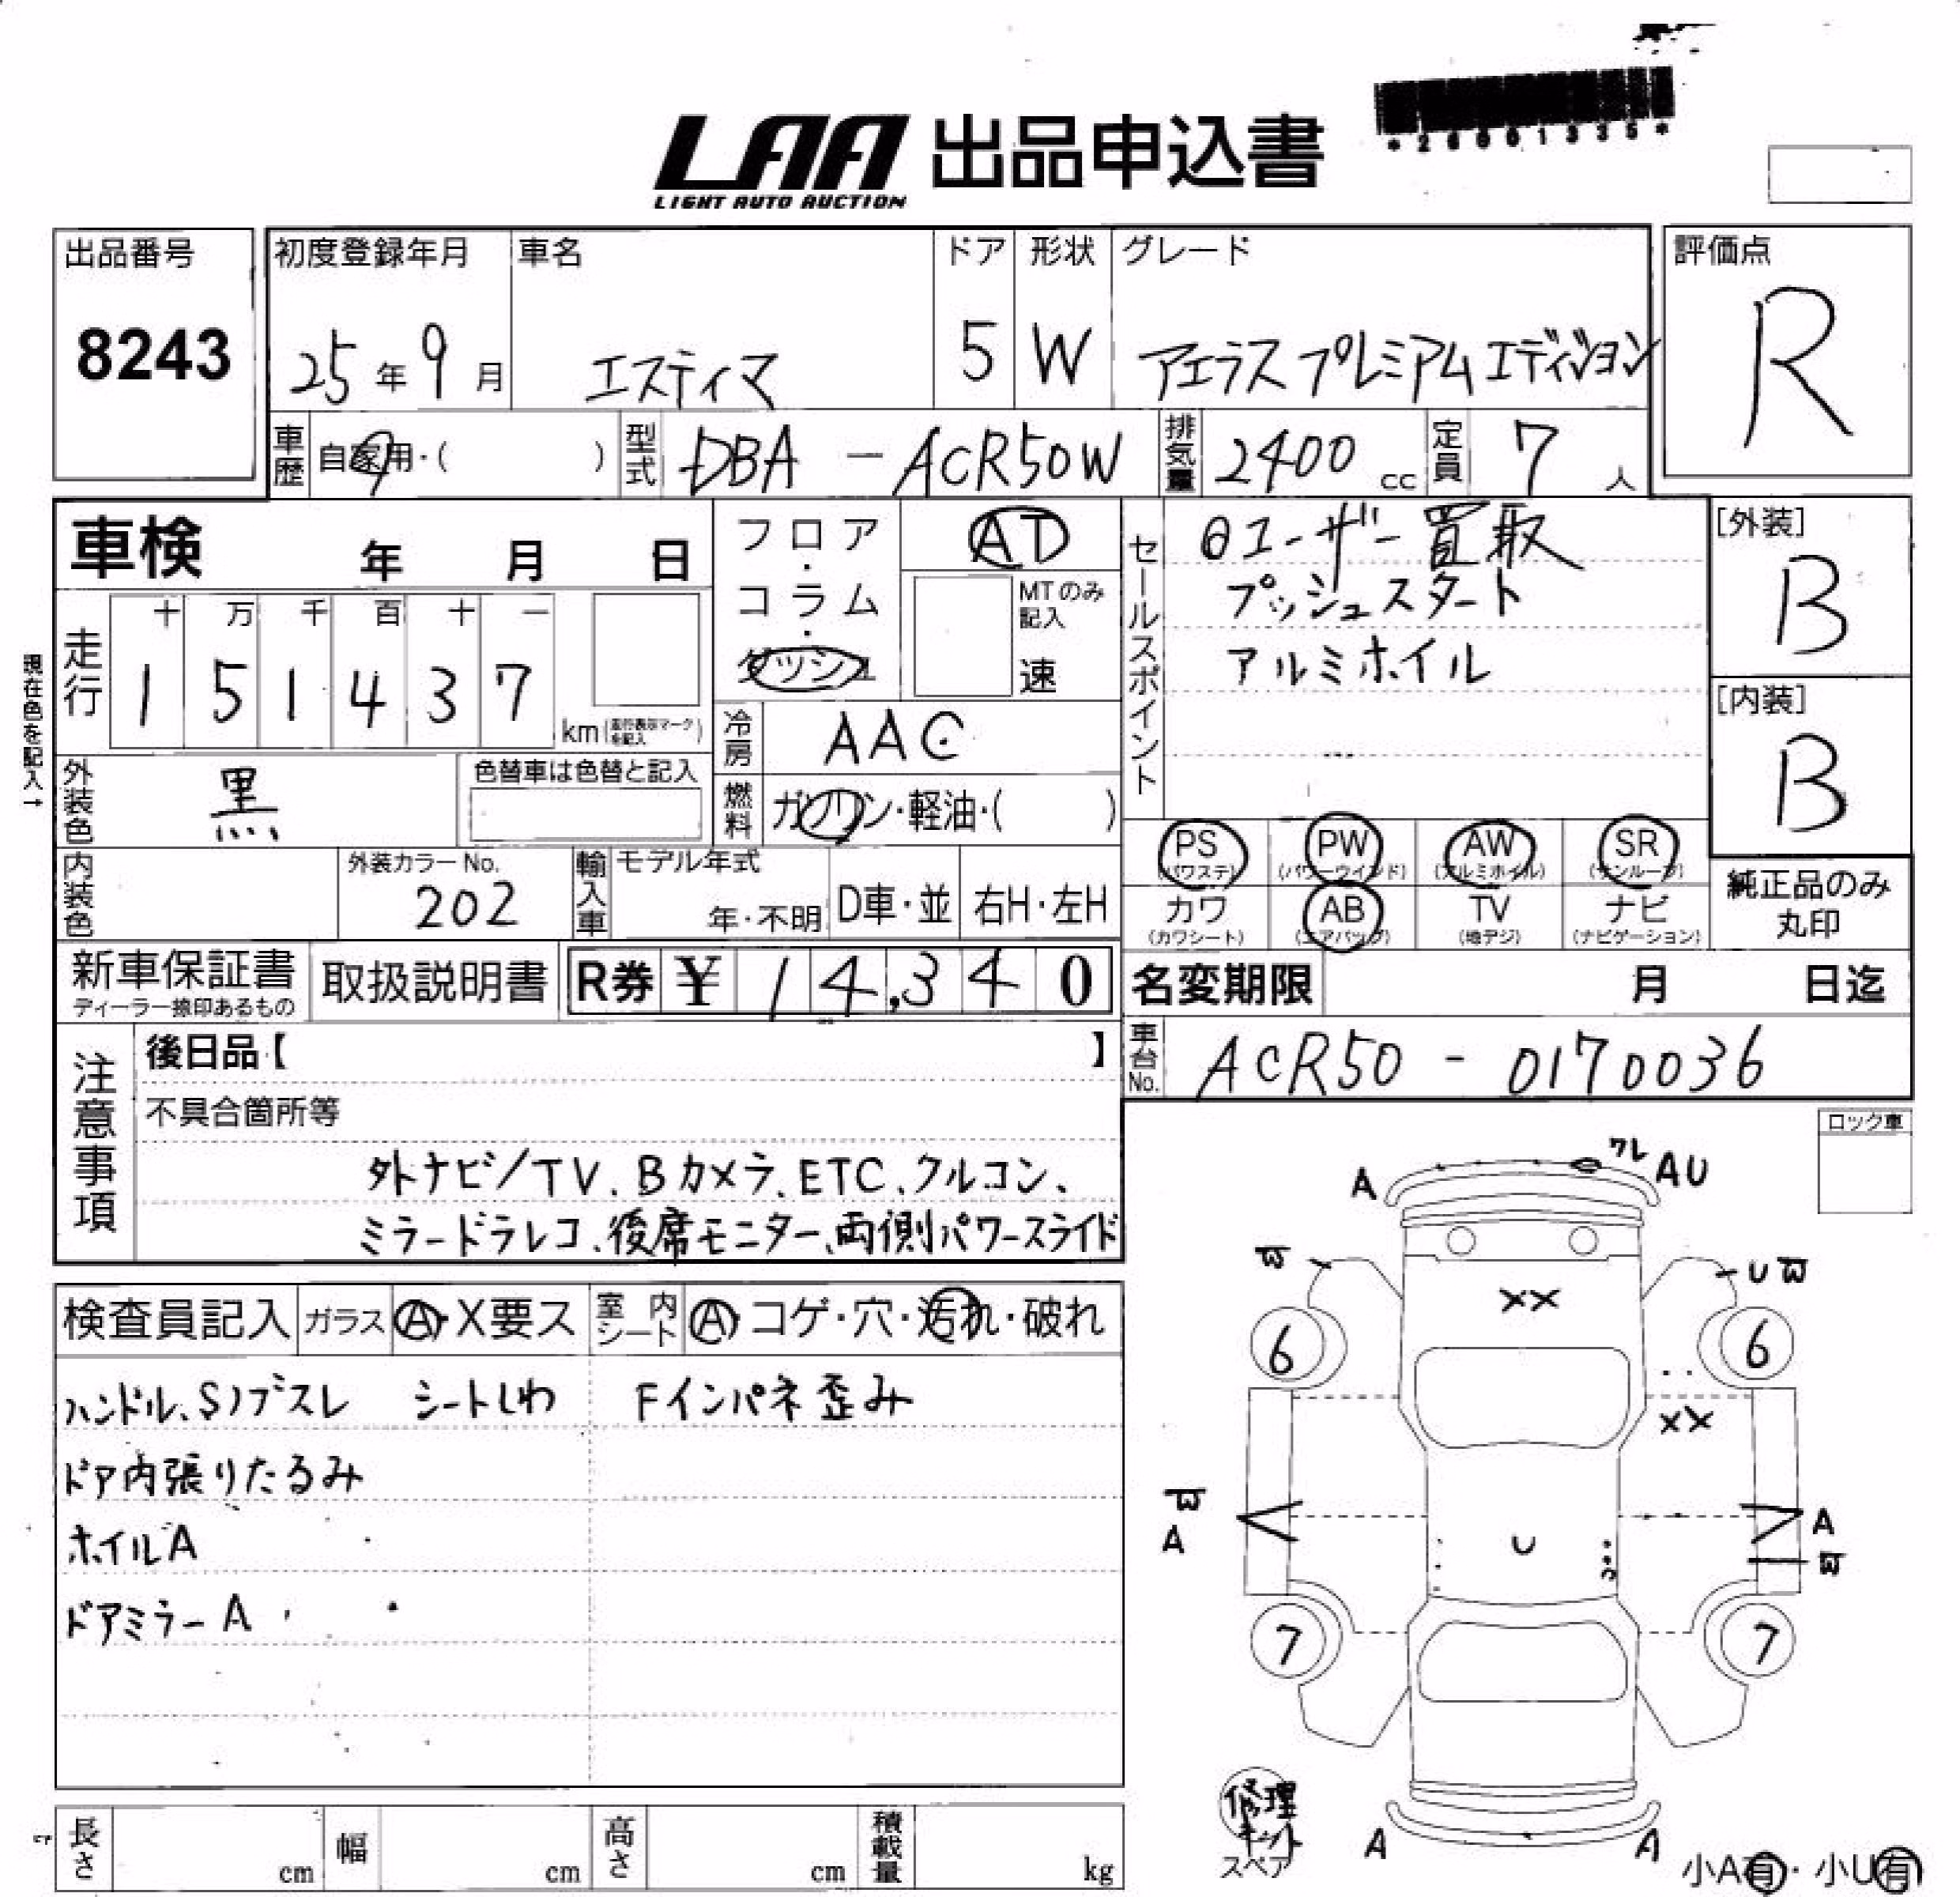 LAA 出品申込書
LIGHT AUTO AUCTION
*26001335*
出品番号
8243
初度登録年月 車名 ドア 形状 グレード
25年9月 エスティマ 5 W アエラスプレミアムエディション
評価点
R
車歴 自家用・( ) 型式 DBA - ACR50W 排気量 2400 cc 定員 7 人
車検 年 月 日
フロア・コラム・ダッシュ
AT
MTのみ記入
速
走行 十 万 千 百 十 一
1 5 1 4 3 7 km
現在色を記入→
冷房 AAC
外装色 黒 色替車は色替と記入
燃料 ガソリン・軽油・( )
内装色 外装カラーNo. 202
輸入車 モデル年式 年・不明 D車・並 右H・左H
セールスポイント
ユーザー買取
プッシュスタート
アルミホイル
[外装]
B
[内装]
B
PS (パワステ) PW (パワーウインド) AW (アルミホイル) SR (サンルーフ)
カワ (カワシート) AB (エアバッグ) TV (地デジ) ナビ (ナビゲーション)
純正品のみ丸印
新車保証書 ディーラー捺印あるもの 取扱説明書 R券 ¥ 14,340
名変期限 月 日迄
車台No. ACR50 - 0170036
注意事項
後日品【 】
不具合箇所等
外ナビ/TV、Bカメラ、ETC、クルコン、
ミラードラレコ、後席モニター、両側パワースライド
検査員記入 ガラス A・X要ス 室内シート A・コゲ・穴・汚れ・破れ
ハンドル、Sノブスレ シートしわ Fインパネ歪み
ドア内張りたるみ
ホイルA
ドアミラーA
長さ cm 幅 cm 高さ cm 積載量 kg
ロック車
A ワレ AU
U
XX
6 6
XX
A U A
7 7
修理キット
スペア
A A
小A有・小U有